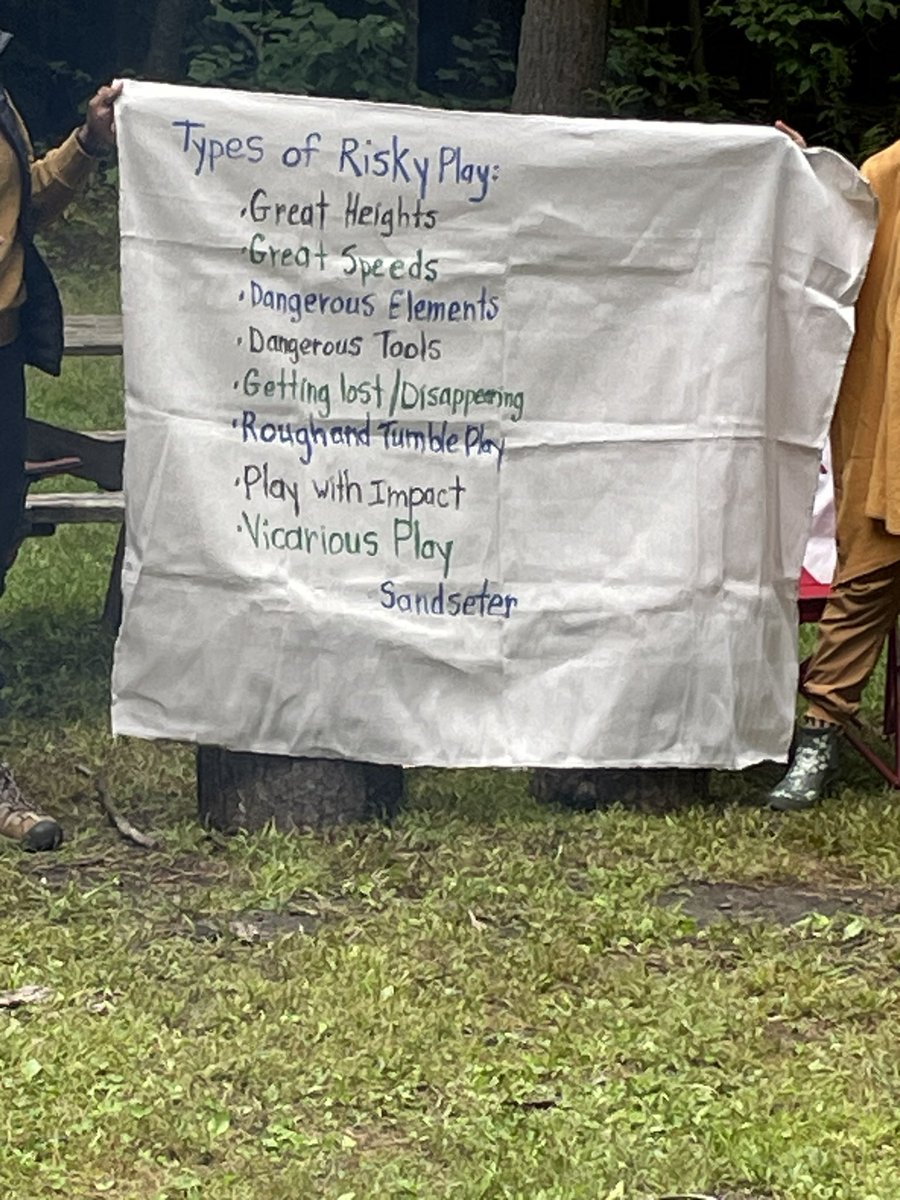 Types of Risky Play:
·Great Heights
·Great Speeds
·Dangerous Elements
·Dangerous Tools
·Getting lost/Disappearing
·Rough and Tumble Play
·Play with Impact
·Vicarious Play
Sandseter